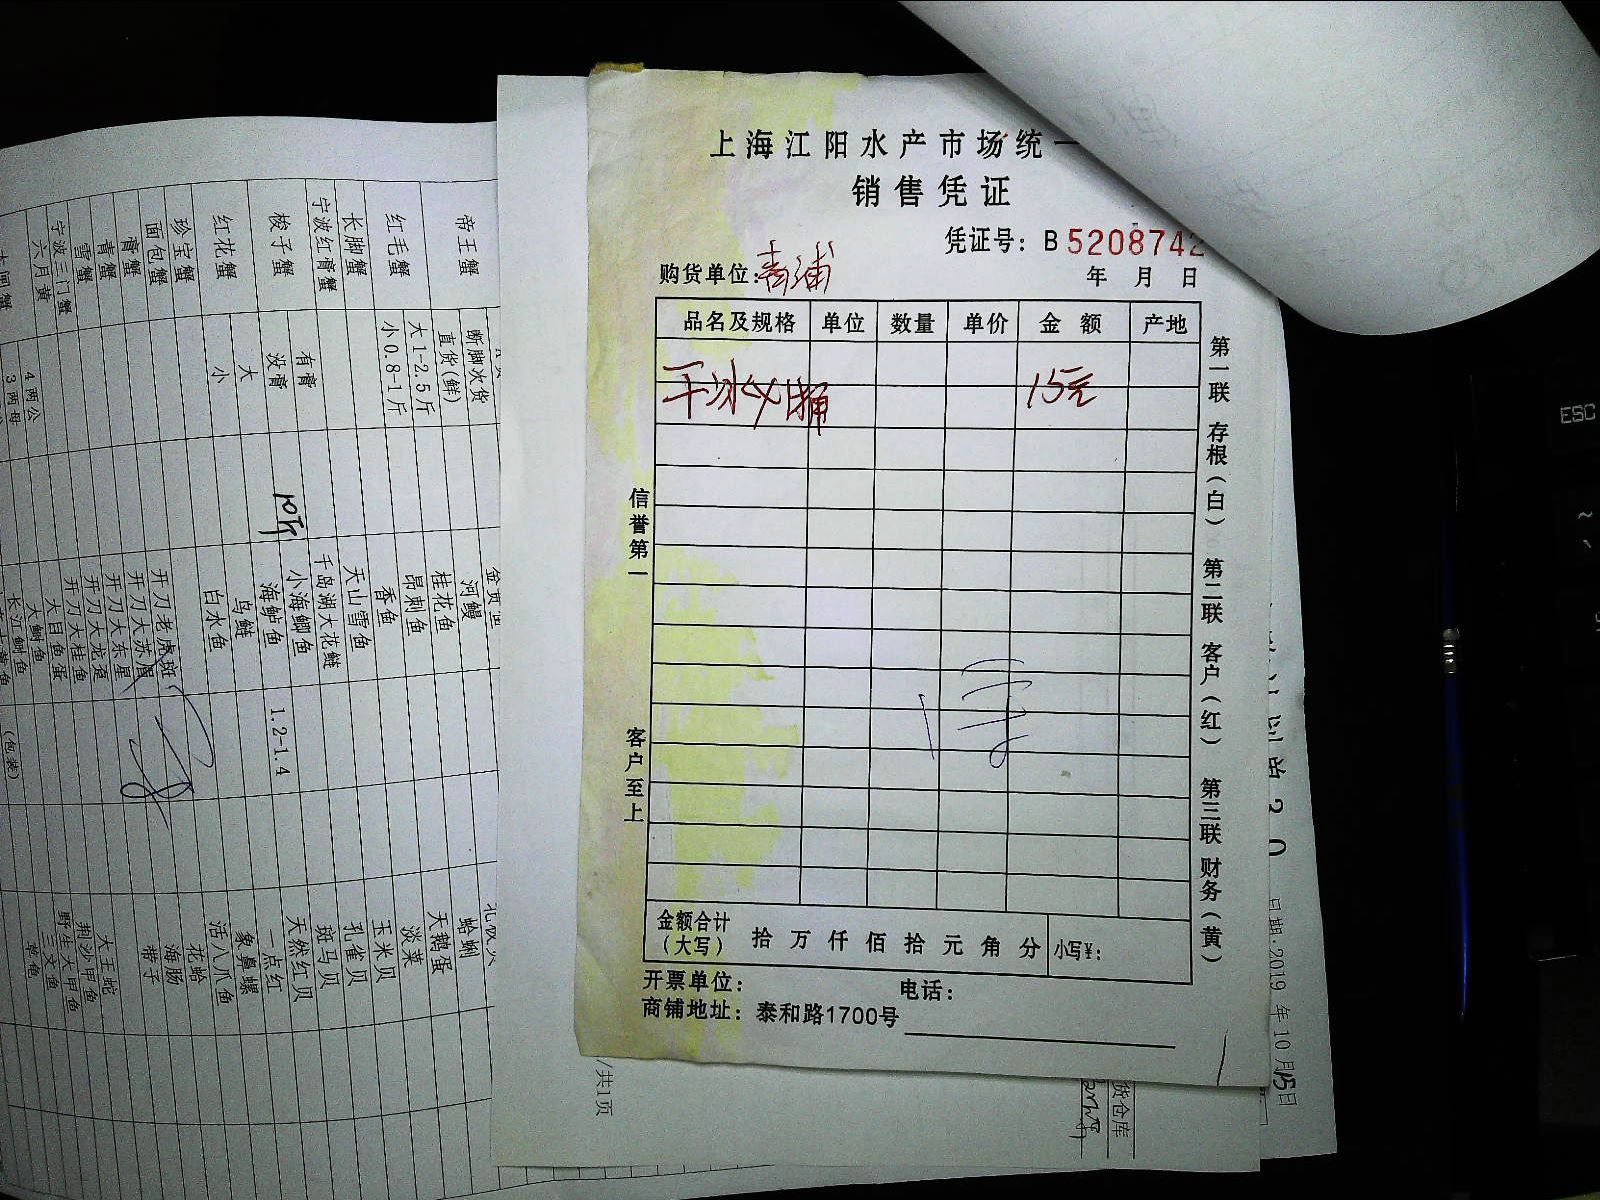 上海江阳水产市场统一
销售凭证
凭证号：B 5208742
购货单位：青浦
年 月 日
品名及规格 单位 数量 单价 金额 产地
干冰 15元
信誉第一 客户至上
第一联 存根（白） 第二联 客户（红） 第三联 财务（黄）
金额合计（大写） 拾 万 仟 佰 拾 元 角 分 小写¥：
开票单位： 电话：
商铺地址：泰和路1700号
帝王蟹
断脚次货
直货(鲜)
红毛蟹
大1-2.5斤
小0.8-1斤
长脚蟹
宁波红膏蟹
梭子蟹
有膏
没膏
红花蟹
大
小
珍宝蟹
面包蟹
膏蟹
青蟹
雪蟹
宁波三门蟹
六月黄
4两公
3两母
河鳗
桂花鱼
昂刺鱼
香鱼
天山雪鱼
千岛湖大花鲢
小海鲫鱼
海鲈鱼
1.2-1.4
鸟鲢
白水鱼
开刀老虎斑
开刀大苏眉
开刀大东星
开刀大龙趸
开刀大桂鱼
大目鱼蛋
大鲥鱼
长江鲥鱼
(包装)
蛤蜊
天鹅蛋
淡菜
玉米贝
孔雀贝
斑马贝
天然红贝
一点红
象鼻螺
活八爪鱼
花蛤
海肠
带子
大王蛇
荆沙甲鱼
野生大甲鱼
三文鱼
草鱼
/共1页
日期.2019 年10月15日
货仓库
ESC